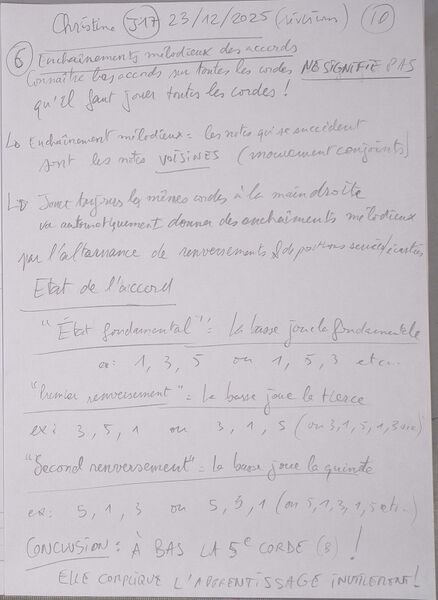 Christine J17 23/12/2025 (révisions) 10
6 Enchaînements mélodieux des accords
Connaître les accords sur toutes les cordes NE SIGNIFIE PAS
qu'il faut jouer toutes les cordes !
Enchaînement mélodieux = les notes qui se succèdent
sont les notes VOISINES (mouvement conjoints)
Jouer toujours les mêmes cordes à la main droite
va automatiquement donner des enchaîments mélodieux
par l'alternance de renversements & de positions serrées/écartées
Etat de l'accord
"État fondamental" = la basse joue la fondamentale
ex: 1, 3, 5 ou 1, 5, 3 etc...
"Premier renversement" = la basse joue la tierce
ex: 3, 5, 1 ou 3, 1, 5 (ou 3,1,5,1,3 etc)
"Second renversement" = la basse joue la quinte
ex: 5, 1, 3 ou 5, 3, 1 (ou 5,1,3,1,5 etc...)
CONCLUSION : À BAS LA 5e CORDE (3) !
ELLE COMPLIQUE L'APPRENTISSAGE INUTILEMENT !